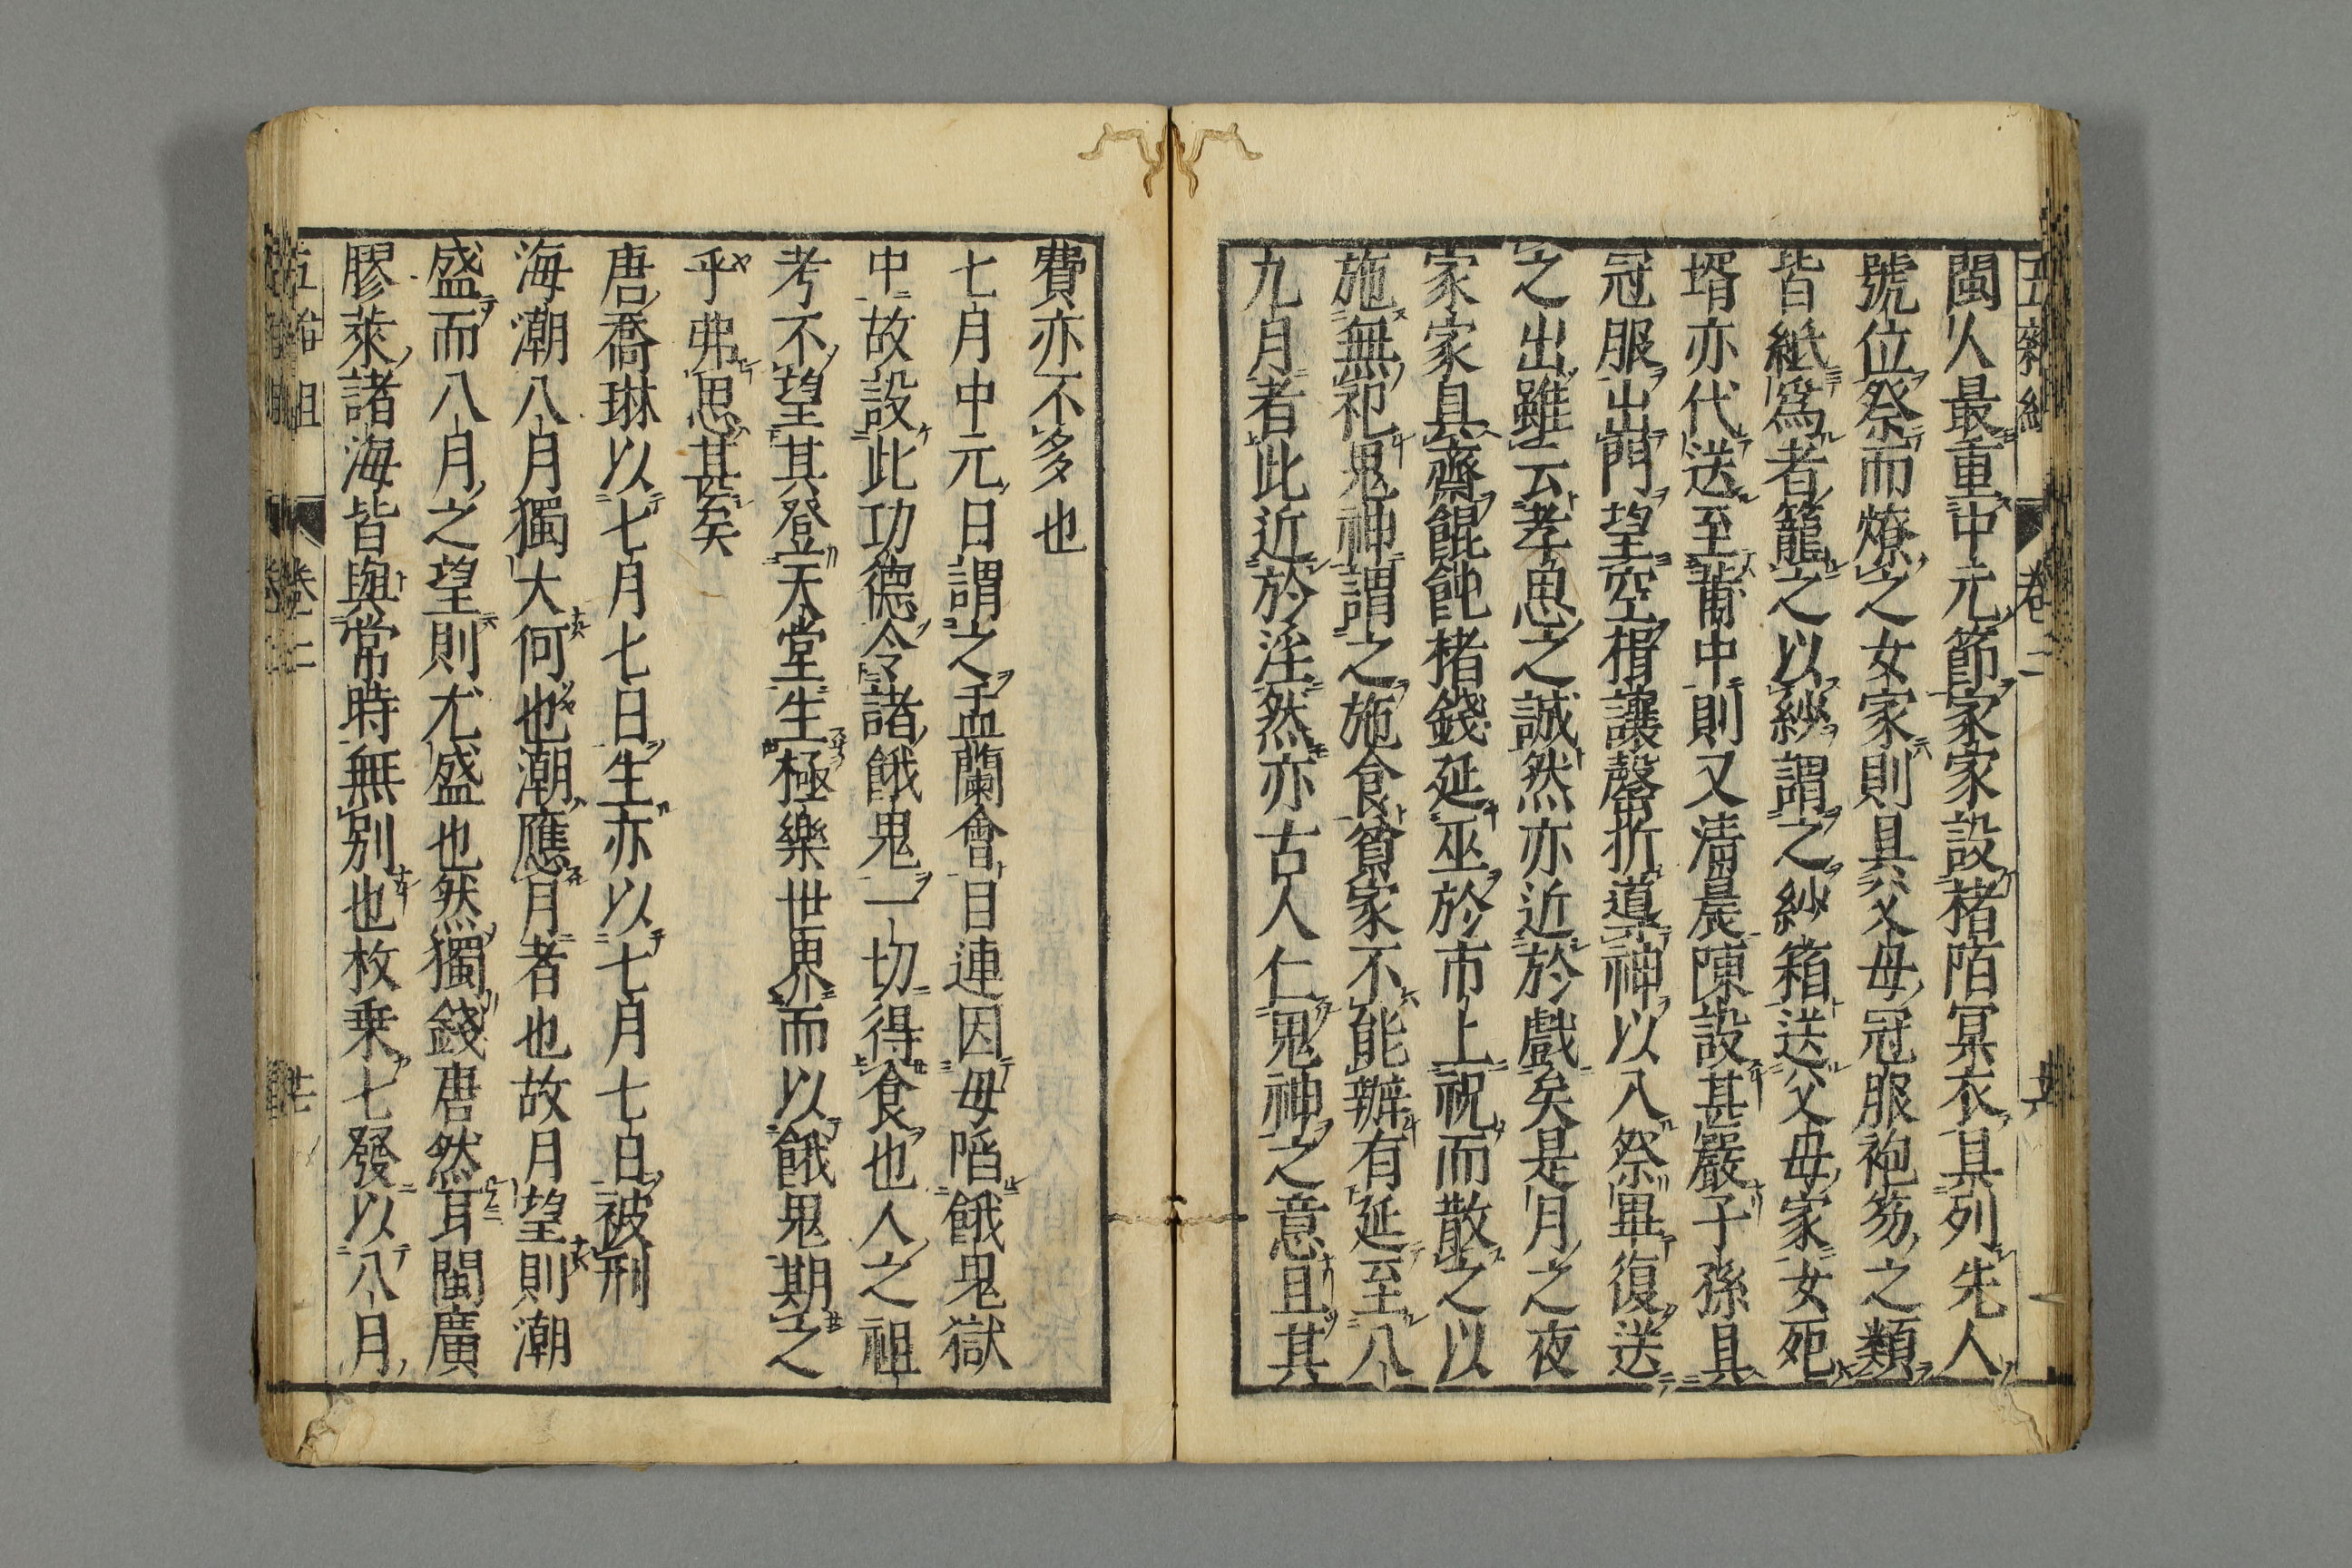 閩人最重中元節家家設楮陌冥衣具列先人
號位祭而燎之女家則具父母冠服袍笏之類
皆紙爲者籠之以紗謂之紗箱送父母家女死
壻亦代送至莆中則又清晨陳設甚嚴子孫具
冠服出門望空揖讓罄折導神以入祭畢復送
之出雖云孝思之誠然亦近於戲矣是月之夜
家家具齋餛飩楮錢延巫於市上祝而散之以
施無祀鬼神謂之施食貧家不能辦有延至八
九月者此近於淫然亦古人仁鬼神之意且其
費亦不多也
七月中元日謂之盂蘭會目連因母陷餓鬼獄
中故設此功德令諸餓鬼一切得食也人之祖
考不望其登天堂生極樂世界而以餓鬼期之
乎弗思甚矣
唐喬琳以七月七日生亦以七月七日被刑
海潮八月獨大何也潮應月者也故月望則潮
盛而八月之望則尤盛也然獨錢唐然耳閩廣
膠萊諸海皆與常時無別也枚乗七發以八月
卷二